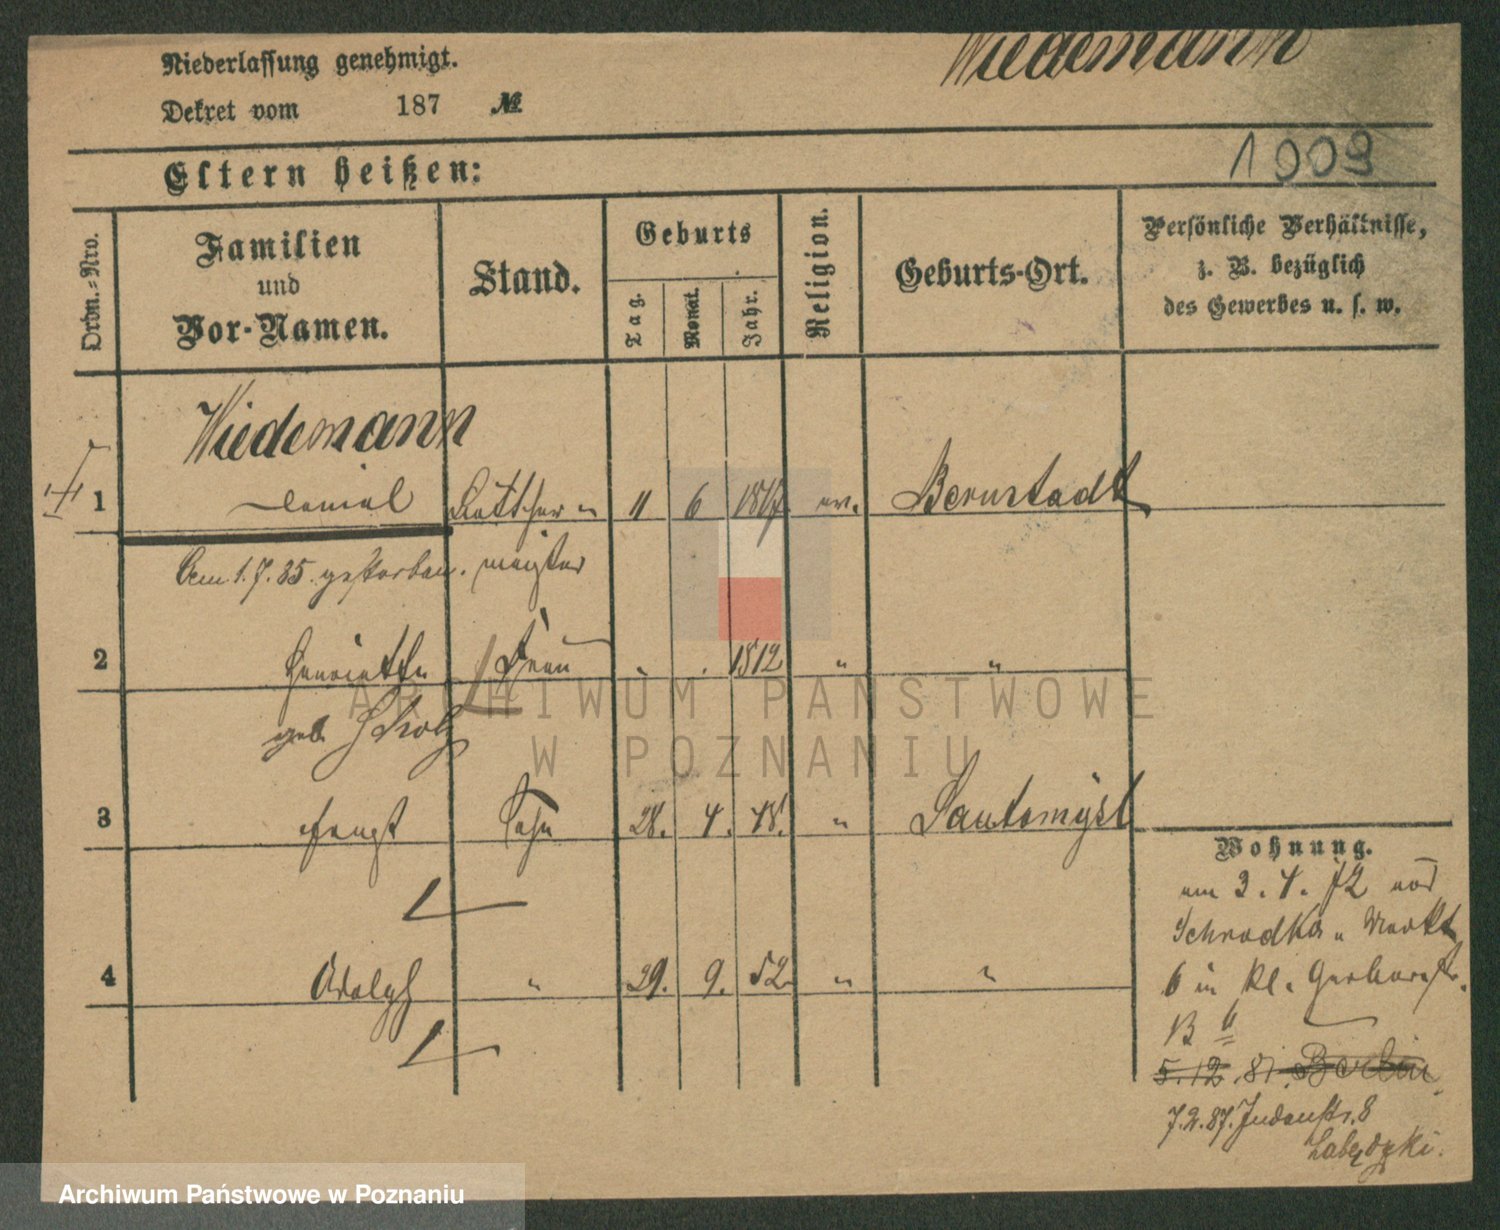 Wiedemann
Niederlassung genehmigt.
Dekret vom 187 №
1009
Eltern heißen:
Ordn.=Nro.
Familien
und
Vor-Namen.
Stand.
Geburts
Tag.
Monat.
Jahr.
Religion.
Geburts-Ort.
Persönliche Verhältnisse,
z. B. bezüglich
des Gewerbes u. s. w.
Wiedemann
1 Daniel Böttcher 11 6 1817 ev. Bernstadt
Am 1.7.85. gestorben. meister
2 Henriette Frau " . 1812 " "
geb Scholz
3 August Sohn 28. 4. 48. " Santomysl
4 Adolph " 29. 9. 52. " "
Wohnung.
am 3. 4. 72 von
Schrodka u Markt
6 in Kl. Gerberstr.
B 4
5.12.81. Berlin
7.2.87. Judenstr. 8
Labędzki.
ARCHIWUM PAŃSTWOWE
W POZNANIU
Archiwum Państwowe w Poznaniu